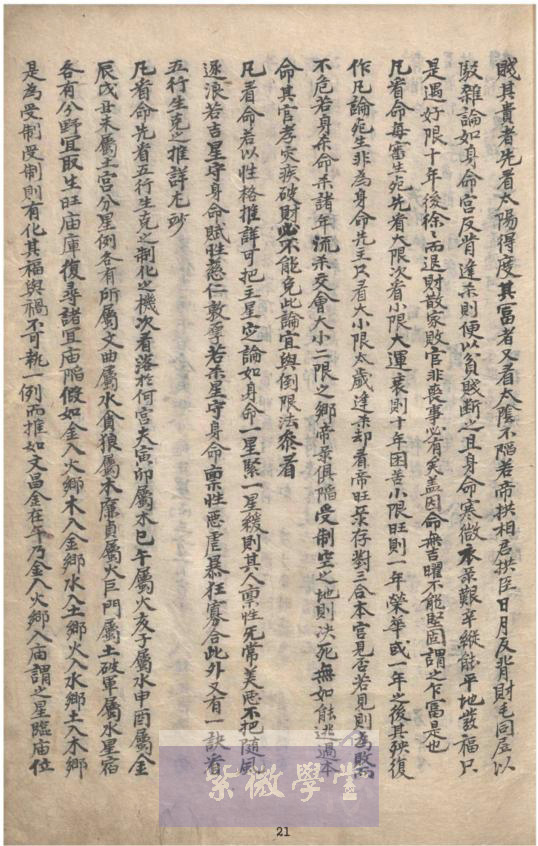 賤其貴者先看太陽得度其富者又看太陰不陷若帝拱相君拱臣日月反背財宅同屈以
駁雜論如身命宮反背逢杀則便以貧賤斷之且身命寒微承杀艱辛縱能平地發福只
是遇好限十年後徐〻而退財散家敗官非喪事必有矣盖因命無吉曜不能堅固謂之乍富是也
凡看命每審生死先看大限次看小限大運衰則十年困苦小限旺則一年榮華或一年之後其殃復
作凡論死生非為身命先主只看大小限太歲逢杀却看帝旺录存對三合本宮見否若見則為敗而
不危若身杀命杀諸年流杀交會大小二限之鄉帝录俱陷受制空之地則决死無如能逃過本
命其官孝灾疾破財必不能免此論宜與倒限法叅看
凡看命若以性格推詳可把主星定論如身命一星緊一星緩則其人禀性死常美恶不把随風
逐浪若吉星守身命賦性慈仁敦厚若杀星守身命禀性恶虐暴狂寡合此外又有一訣看
五行生克之推詳尤玅
凡看命先看五行生克之制化之機次看落於何宮夫寅卯屬木巳午屬火亥子屬水申酉屬金
辰戌丑未屬土宮分星例各有所屬文曲屬水貪狼屬木廉貞屬火巨門屬土破軍屬水星宿
各有分野宜取生旺庙庫復尋諸宜庙陷假如金入火鄉木入金鄉水入土鄉火入水鄉土入木鄉
是為受制受制則有化其福與禍不可執一例而推如文昌金在午乃金入火鄉入庙謂之星臨庙位
紫微學堂
21